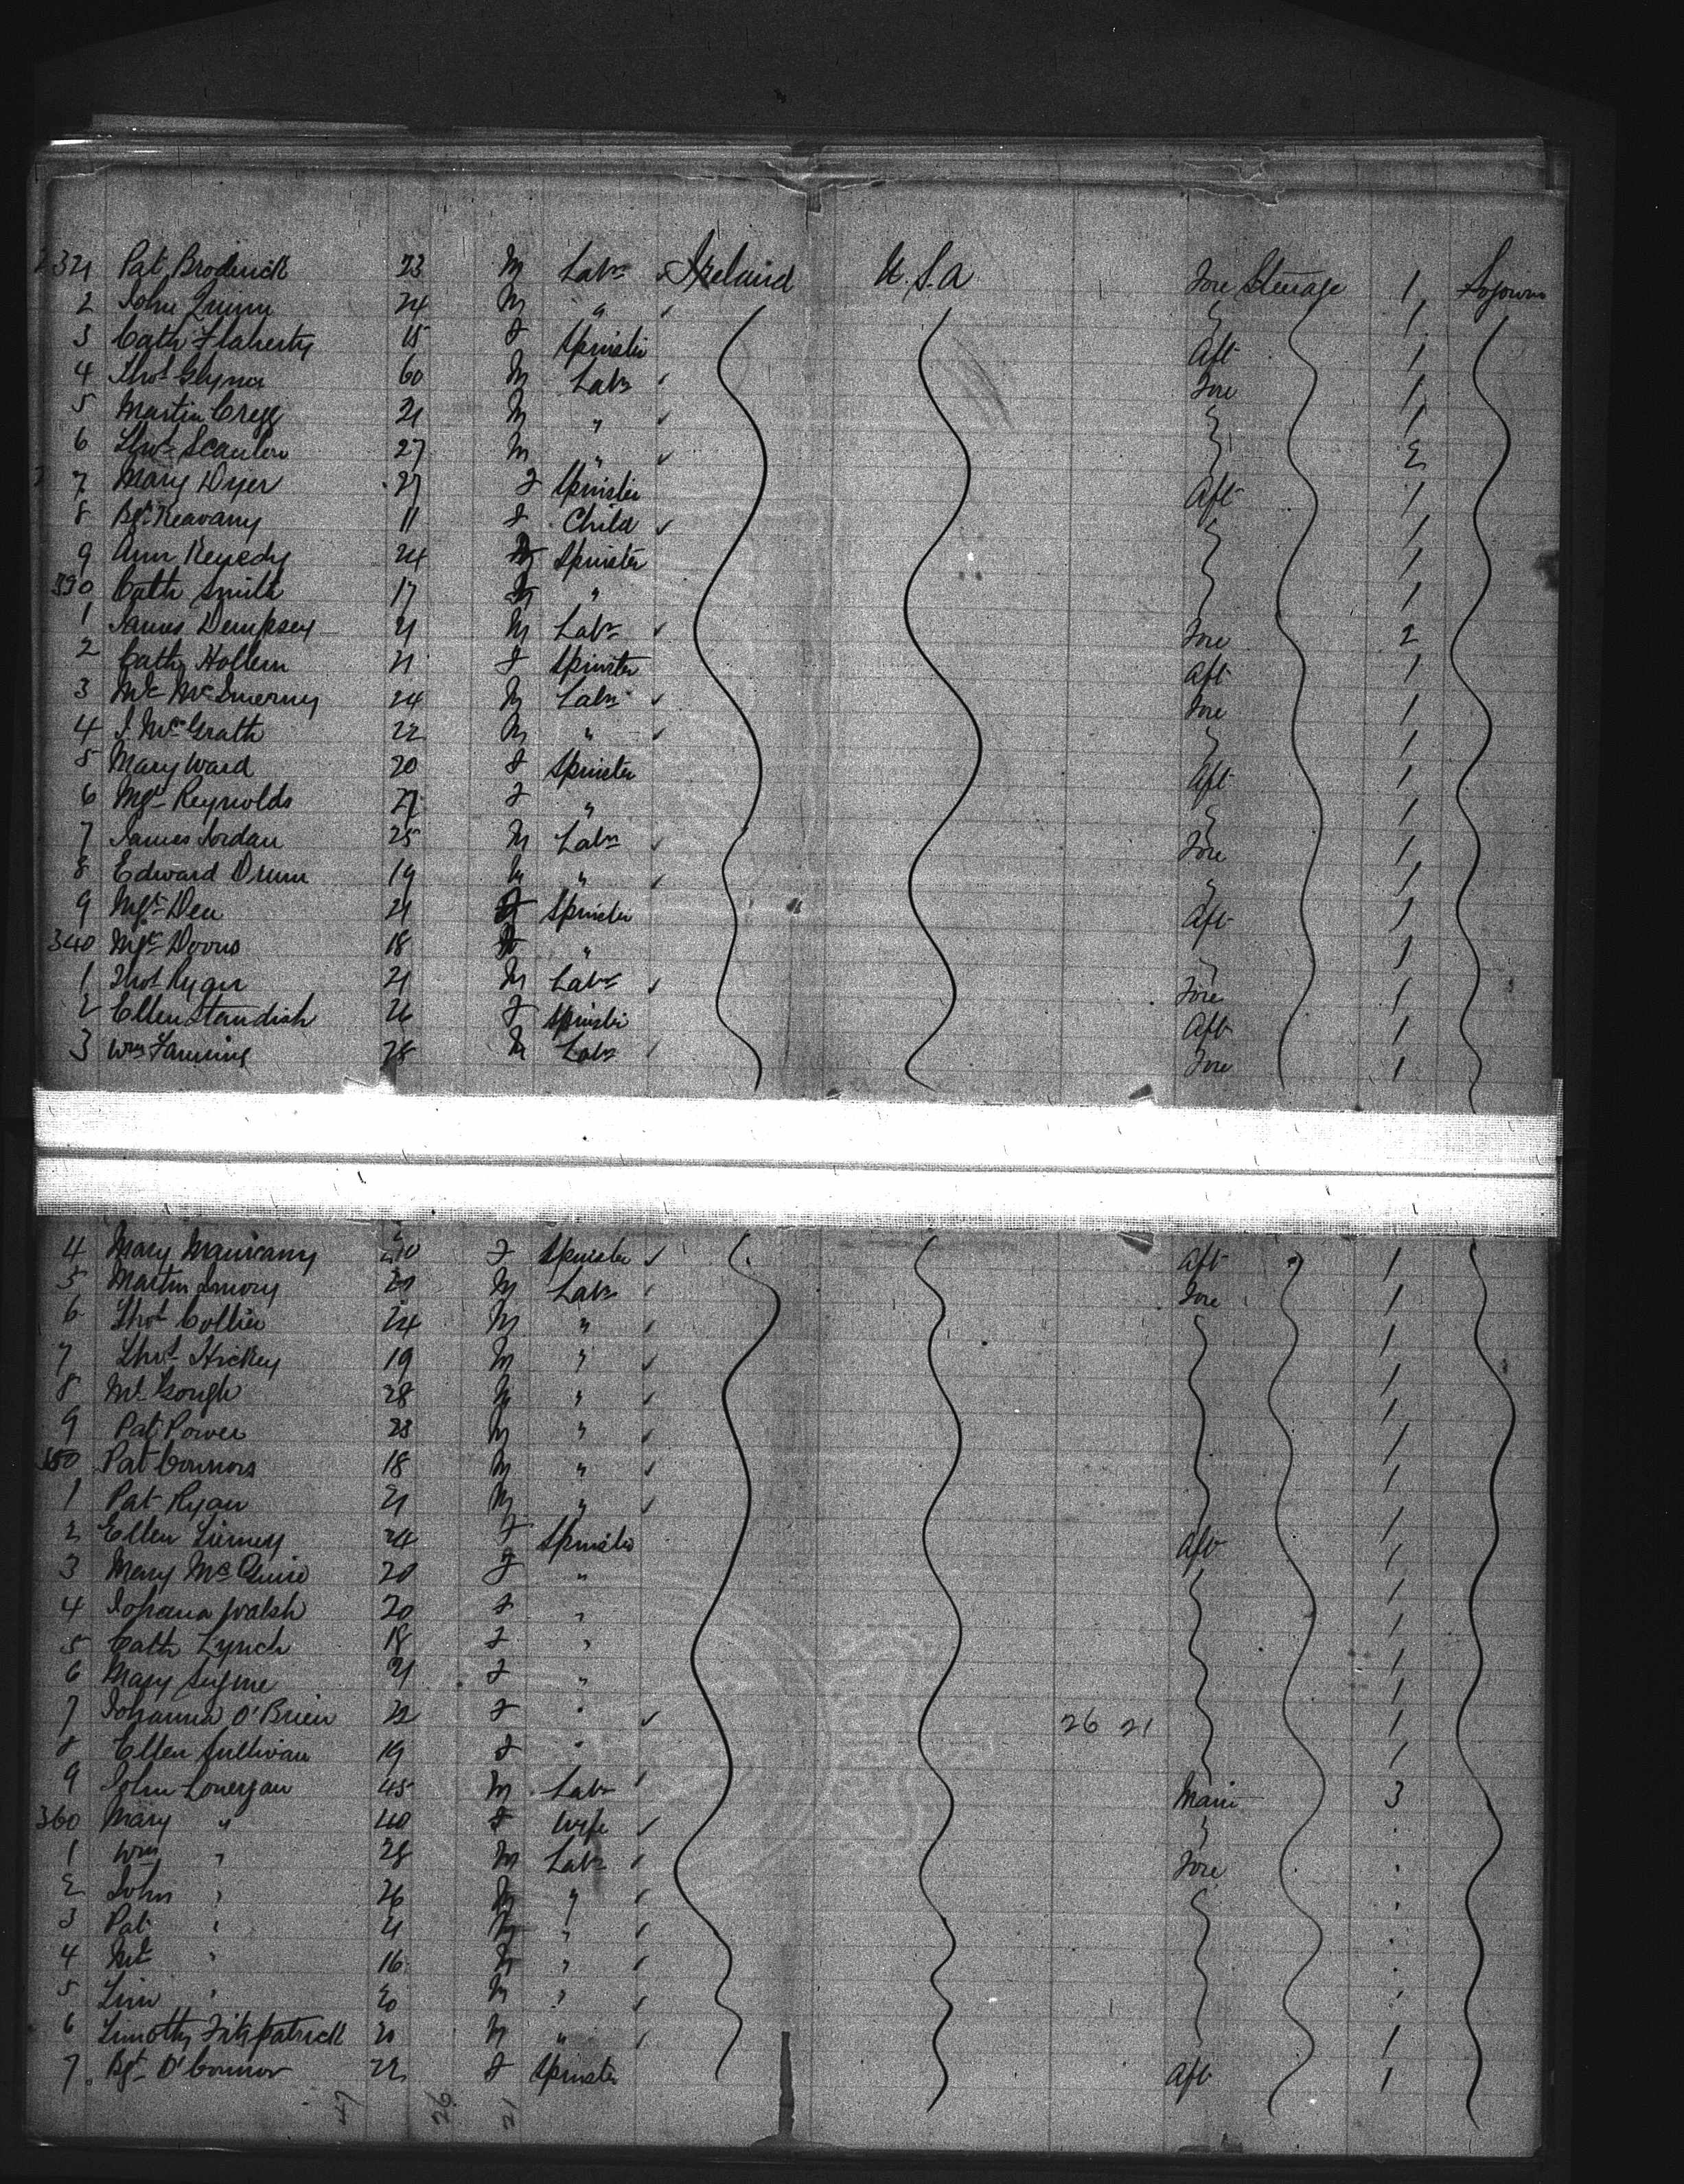 321 Pat Broderick 23 M Labr Ireland U.S.A Fore Steerage 1 Sojourn
2 John Quinn 24 M " 1
3 Cath Flaherty 18 F Spinster Aft 1
4 Thos Glynn 60 M Labr Fore 1
5 Martin Cregg 21 M " 1
6 Thos Scanlon 27 M " 2
7 Mary Dyer 27 F Spinster Aft 1
8 Bgt Keavany 11 F Child 1
9 Ann Kenedy 24 F Spinster 1
330 Cath Smith 17 F " 1
1 James Dempsey 21 M Labr Fore 2
2 Cath Hollern 21 F Spinster Aft 1
3 Ml McInerney 24 M Labr Fore 1
4 J. McGrath 22 M " 1
5 Mary Ward 20 F Spinster Aft 1
6 Mgt Reynolds 27 F " 1
7 James Jordan 25 M Labr Fore 1
8 Edward Drum 19 M " 1
9 Mgt Dea 21 F Spinster Aft 1
340 Mgt 18 F " 1
1 Thos Ryan 21 M Labr Fore 1
2 Ellen Standish 26 F Spinster Aft 1
3 Wm Fanning 28 M Labr Fore 1
4 Mary F Spinster Aft 1
5 Martin M Labr Fore 1
6 Thos Collier 24 M " 1
7 Thos Hickey 19 M " 1
8 Ml Gough 28 M " 1
9 Pat Power 23 M " 1
350 Pat Connors 18 M " 1
1 Pat Ryan 21 M " 1
2 Ellen Tierney 24 F Spinster Aft 1
3 Mary McGuire 20 F " 1
4 Johana Walsh 20 F " 1
5 Cath Lynch 18 F " 1
6 Mary 21 F " 1
7 Johanna O'Brien 22 F " 26 21 1
8 Ellen Sullivan 19 F " 1
9 John Lonergan 45 M Labr Main 3
360 Mary " 40 F Wife
1 Wm " 28 M Labr Fore
2 John " 26 M "
3 Pat " 21 M "
4 Ml " 16 M "
5 Tim " 20 M "
6 Timothy Fitzpatrick 20 M " 1
7 Bgt O'Connor 22 F Spinster Aft 1
47 26 21